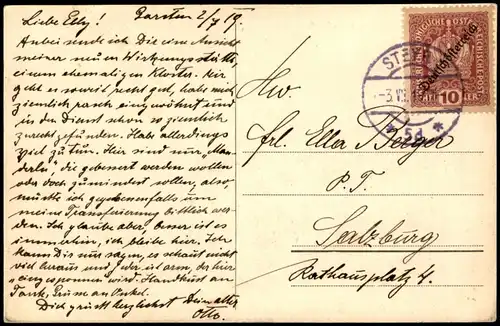 Liebe Elly! Garsten 2/7 19.
Anbei sende ich Dir eine Ansicht
meiner neuen Wirkungsstätte,
einem ehemaligen Kloster. Mir
geht es soweit recht gut, habe mich
ziemlich rasch eingewöhnt und
in den Dienst schon so ziemlich
zurecht gefunden. Habe allerdings
viel zu tun. Hier sind nur
die gebessert werden wollen
oder doch zumindest sollen, also,
müßte ich gegebenenfalls um
meine Transferierung bittlich wer-
den. Ich glaube aber, besser ist es
immerhin, ich bleibe hier. Ich
kann Dir nur sagen, es schaut nicht
viel heraus und jeder ist arm, der hier
eingesponnen wird. Handkuss an
Tante, Grüsse an Onkel.
Dich grüsst herzlichst Dein alter
Otto.
Hw.
Frl. Eller Berger
P. T.
Salzburg
Rathausplatz 4.
Deutschösterreich
10
HELLER
STEY
-3.VII.
* 5d *